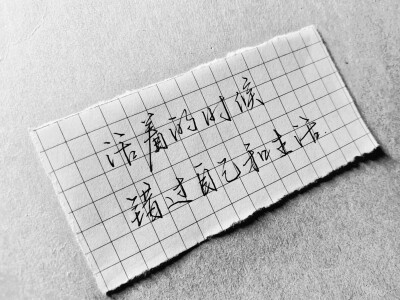 活着的时候
错过自己和生活